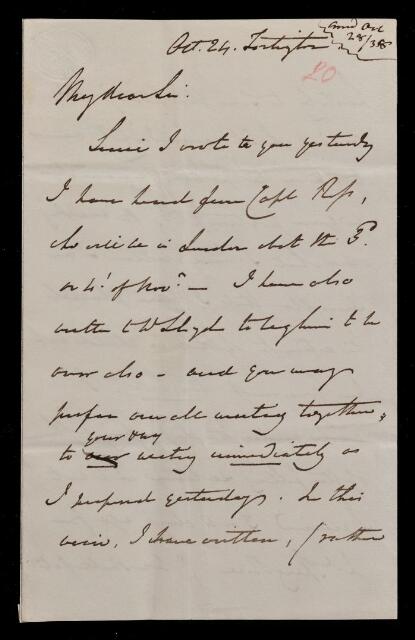 Oct. 24. Tortington
recd Oct
28/38
20
My dear Sir:
Since I wrote to you yesterday
I have heard from Capt Ross,
who will be in London abt the 3d.
or 4t. of Novr. — I have also
written to Lloyd to beg him to be
over also – and you may
prefer our all meeting together,
your day
to our meeting immediately as
I proposed yesterday. In this
view, I have written, (rather